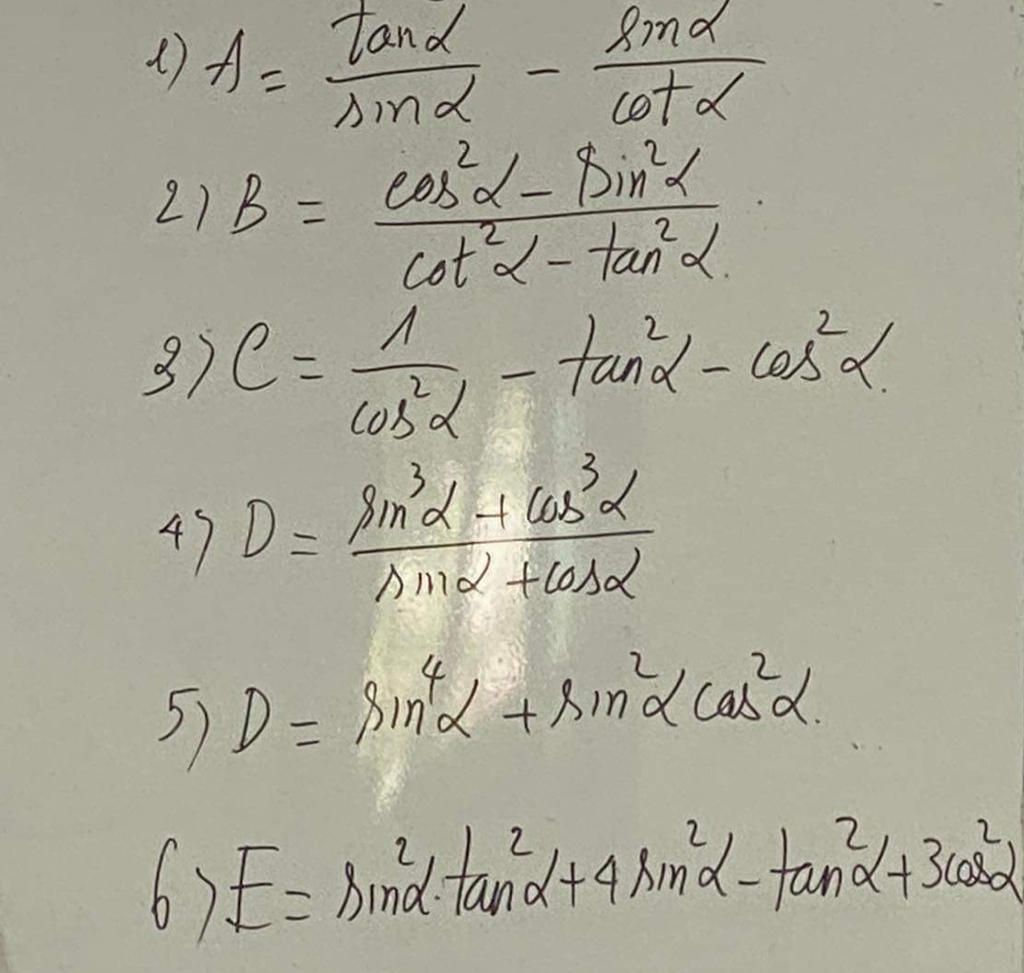 1) A = tanα/sinα - sinα/cotα
2) B = (cos²α - sin²α)/(cot²α - tan²α).
3) C = 1/cos²α - tan²α - cos²α.
4) D = (sin³α + cos³α)/(sinα + cosα)
5) D = sin⁴α + sin²α cos²α.
6) E = sin²α.tan²α + 4 sin²α - tan²α + 3cos²α